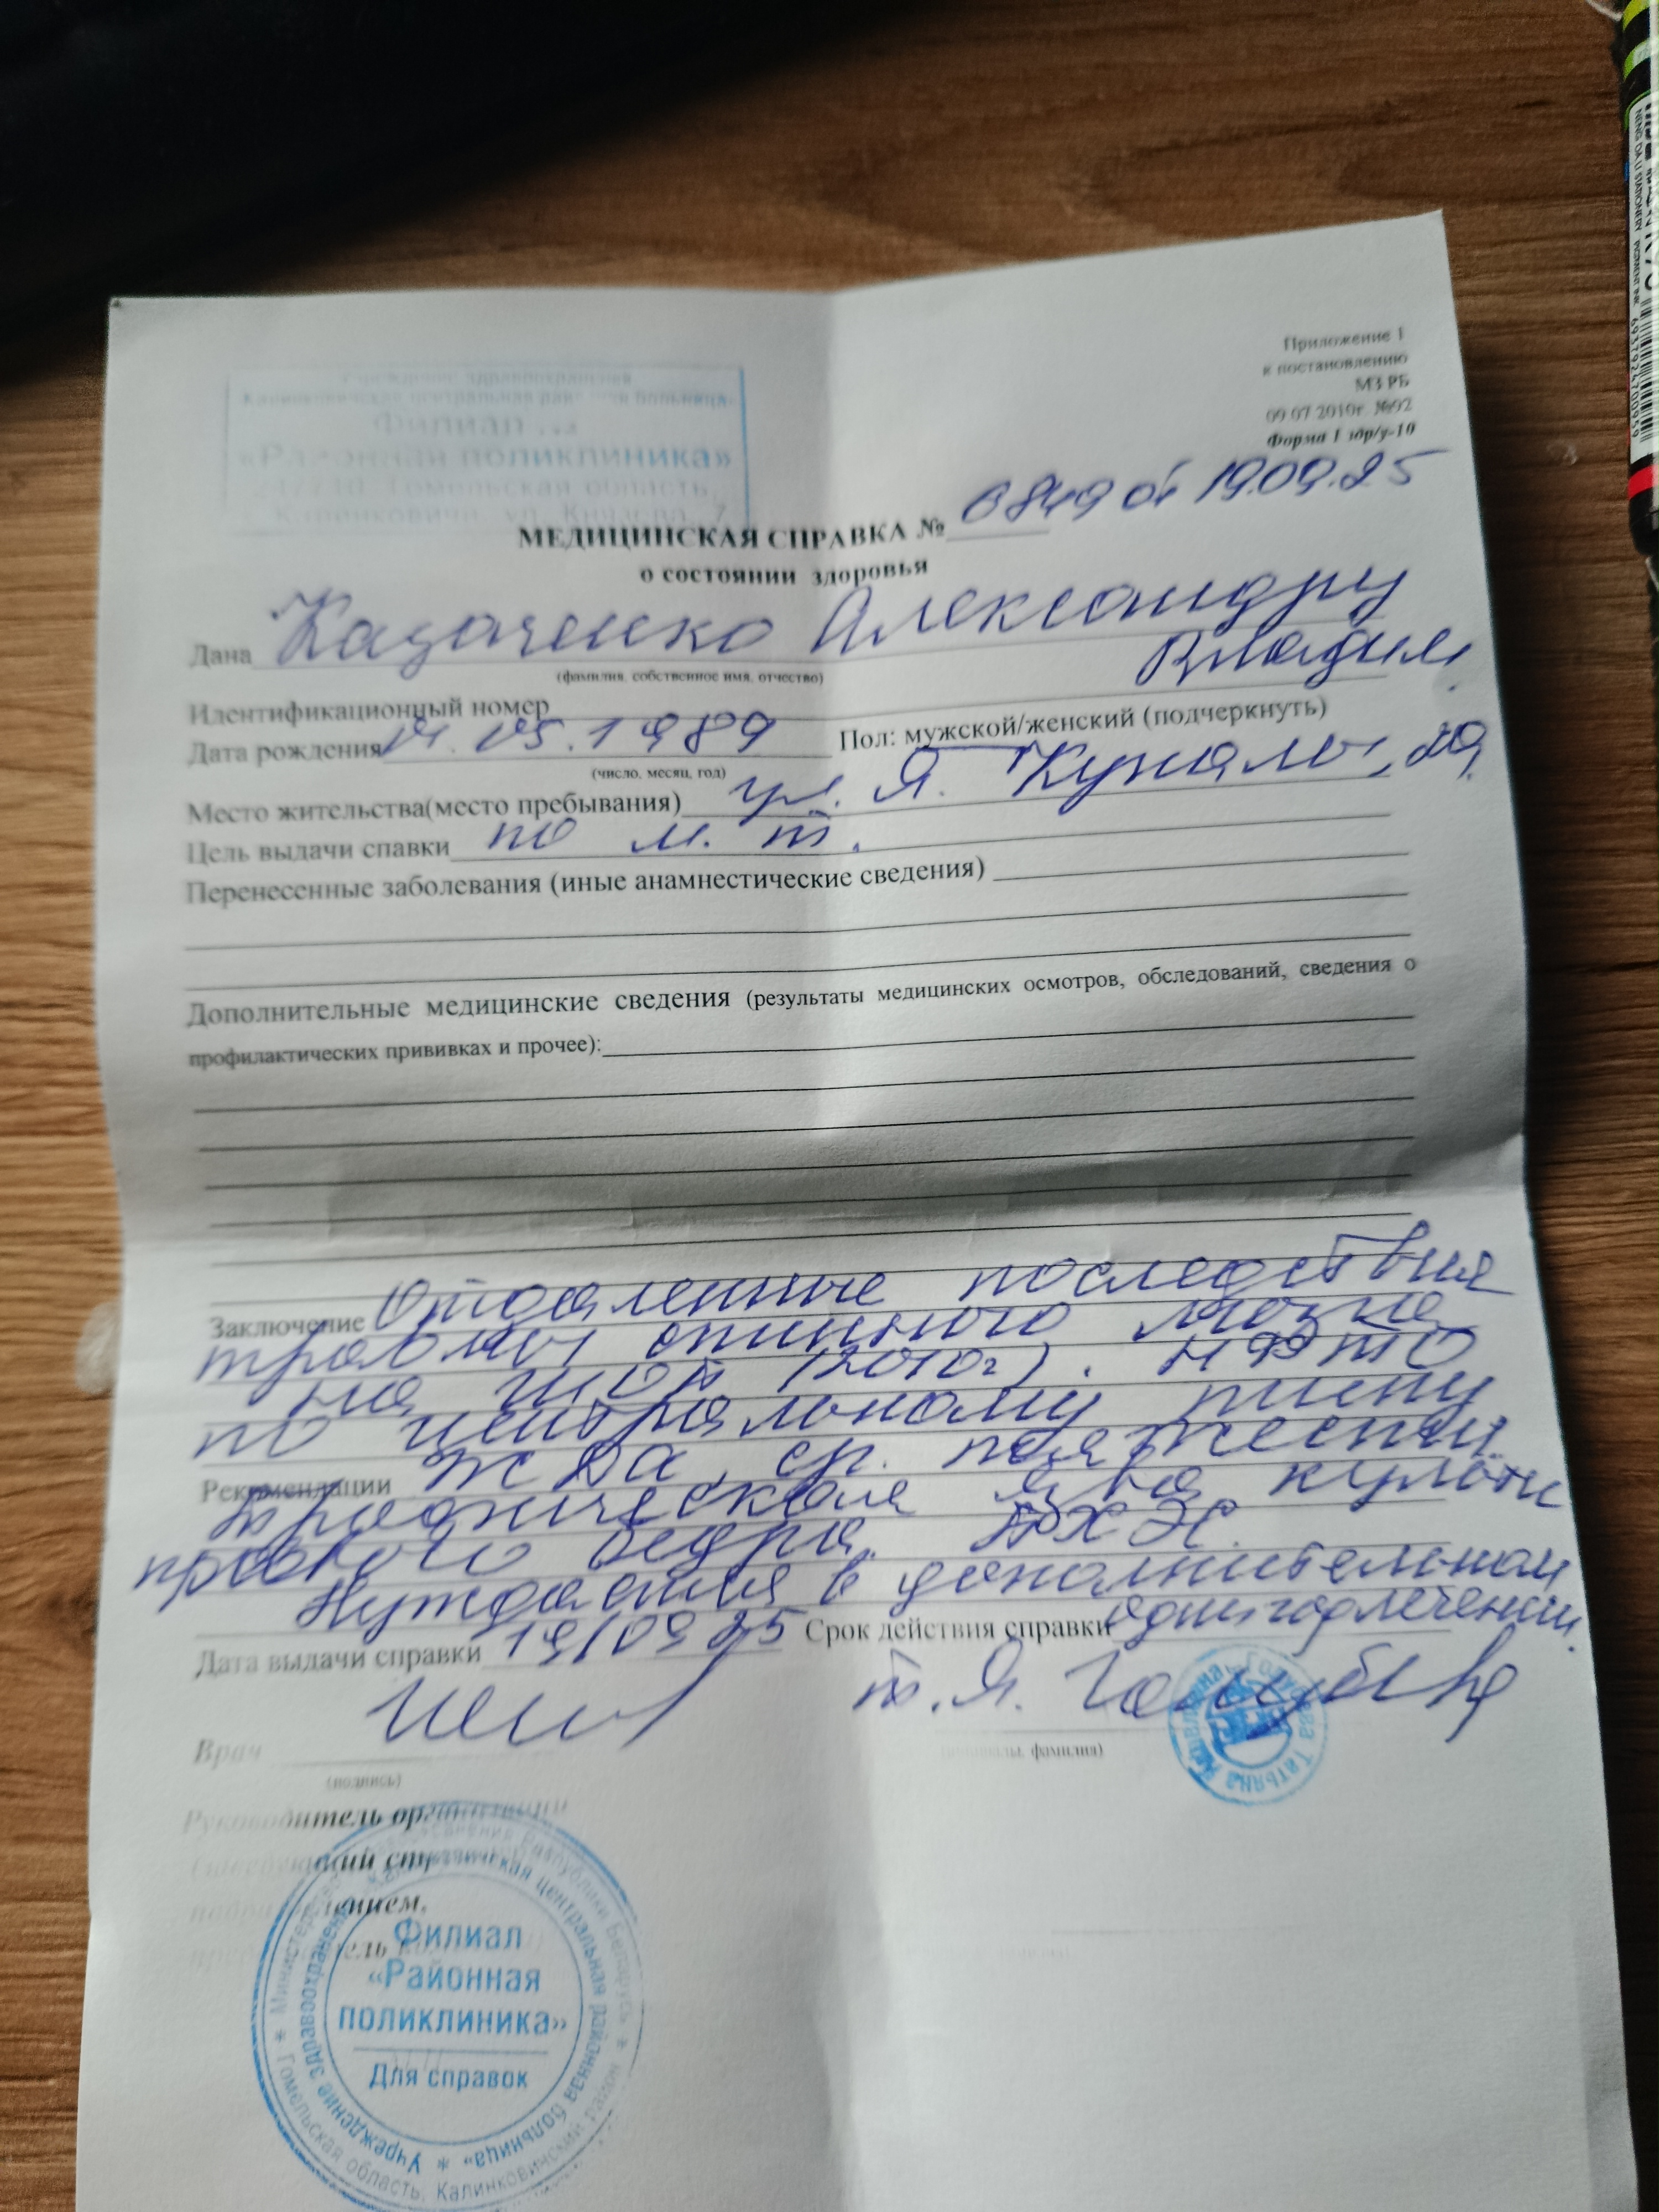 Учреждение здравоохранения
Филиал
«Районная поликлиника»
Гомельская область,
Приложение 1
к постановлению
МЗ РБ
09.07.2010г. №92
Форма 1 здр/у-10
МЕДИЦИНСКАЯ СПРАВКА № 6849 от 19.09.25
о состоянии здоровья
Дана Казаченко Александру
Владим.
(фамилия, собственное имя, отчество)
Идентификационный номер
Дата рождения .05.1989 Пол: мужской/женский (подчеркнуть)
(число, месяц, год)
Место жительства(место пребывания) ул. Я. Купалы,
Цель выдачи спавки по м. т.
Перенесенные заболевания (иные анамнестические сведения)
Дополнительные медицинские сведения (результаты медицинских осмотров, обследований, сведения о
профилактических прививках и прочее):
Заключение Отдаленные последствия
травмы спинного мозга
на (2010г). НФТО
по центральному типу
Рекомендации ЖДА, ср. тяжести
Трофическая язва культи
правого бедра.
Нуждается в дополнительном
Дата выдачи справки 19/09 25 Срок действия справки один год лечении.
Врач Т.Я. Голубева
(подпись)
(инициалы, фамилия)
Руководитель организации
Филиал
«Районная
поликлиника»
Для справок
Министерство здравоохранения Республики Беларусь * Гомельская область, Калинковичский район *
Учреждение здравоохранения «Калинковичская центральная районная больница» *
Голубева Татьяна